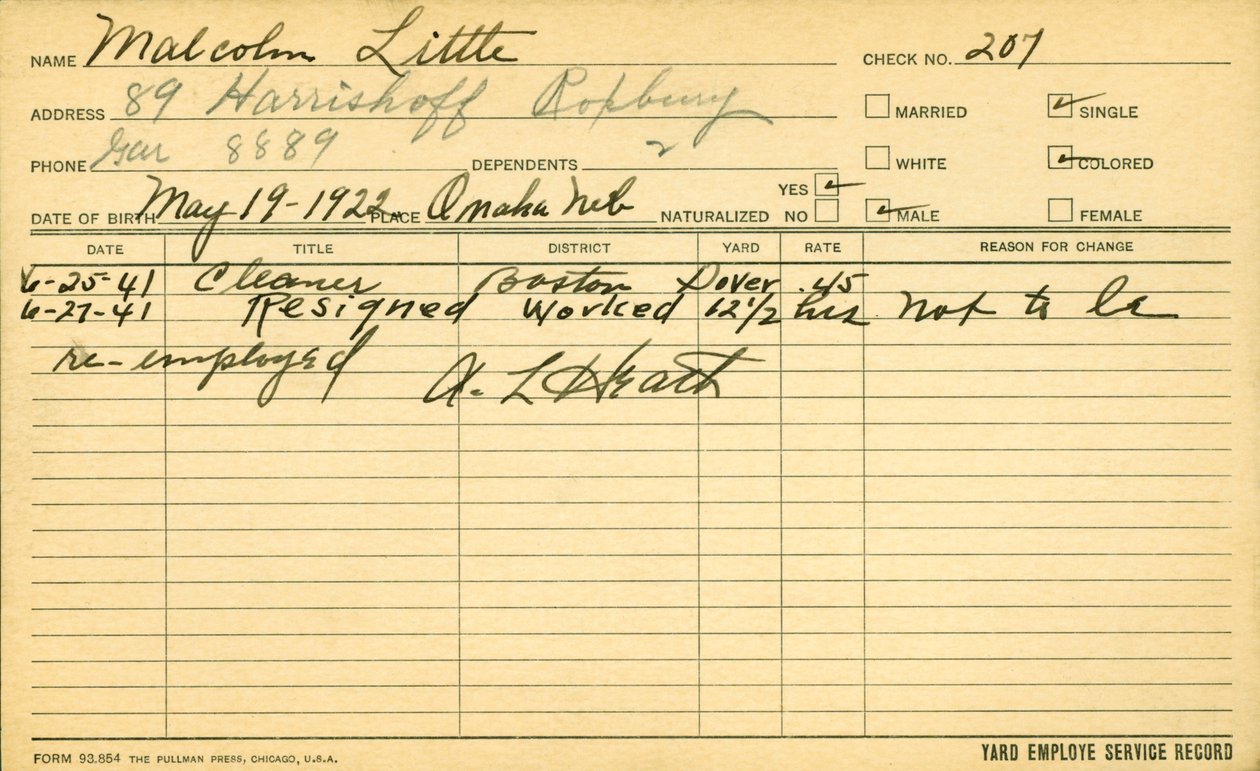 NAME Malcolm Little CHECK NO. 207
ADDRESS 89 Harrishoff Roxbury MARRIED SINGLE
PHONE Gar 8889 DEPENDENTS 2 WHITE COLORED
DATE OF BIRTH May 19-1922 PLACE Omaha Neb NATURALIZED YES NO MALE FEMALE
DATE TITLE DISTRICT YARD RATE REASON FOR CHANGE
6-25-41 Cleaner Boston Dover .45
6-27-41 Resigned Worked 12 1/2 hrs not to be
re-employed A. L. Heath
FORM 93.854 THE PULLMAN PRESS, CHICAGO, U.S.A. YARD EMPLOYE SERVICE RECORD